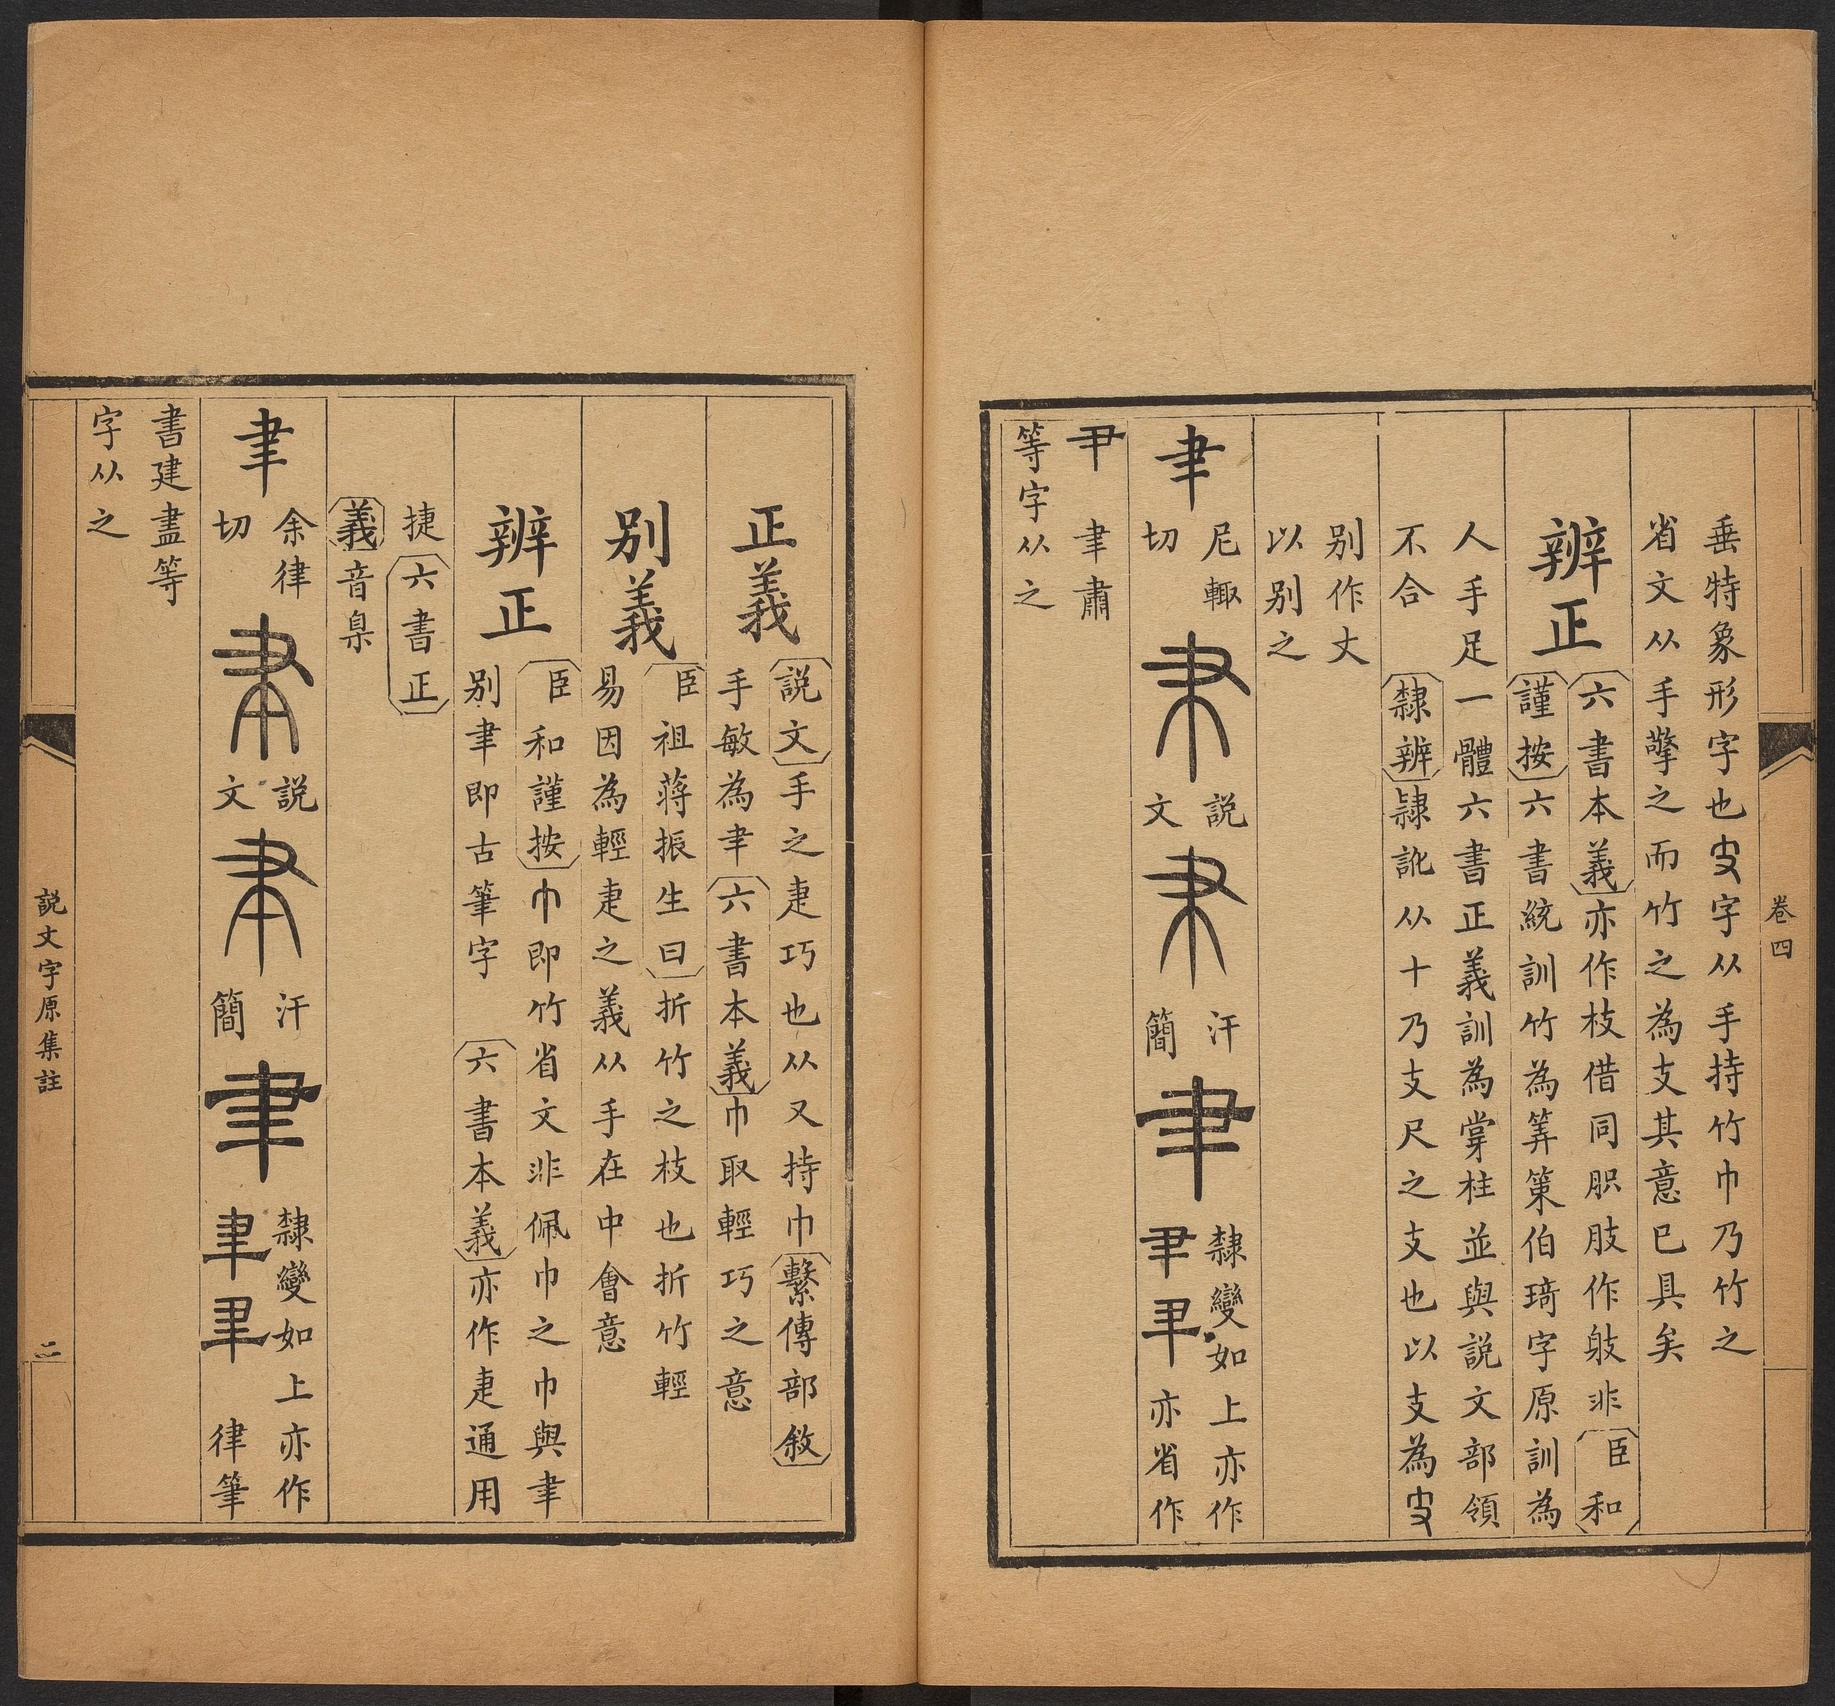 卷四
垂特象形字也𠬢字从手持竹巾乃竹之
省文从手擎之而竹之為支其意已具矣
辨正
六書本義亦作枝借同胑肢作𨈛非臣和
謹按六書統訓竹為筭策伯琦字原訓為
人手足一體六書正義訓為掌柱並與説文部領
不合
隸辨隷訛从十乃支尺之支也以支為𠬢
别作丈
以别之
𦘒
尼輙
切
説
文
汗
簡
隸變如上亦作
亦省作
𦘒肅
等字从之
正義
説文手之疌巧也从又持巾繫傳部敘
手敏為𦘒六書本義巾取輕巧之意
别義
臣祖蔣振生曰折竹之枝也折竹輕
易因為輕疌之義从手在中會意
辨正
臣和謹按巾即竹省文非佩巾之巾與𦘒
别聿即古筆字 六書本義亦作疌通用
捷六書正
義音臬
聿
余律
切
説
文
汗
簡
隸變如上亦作
律筆
書建盡等
字从之
説文字原集註
二